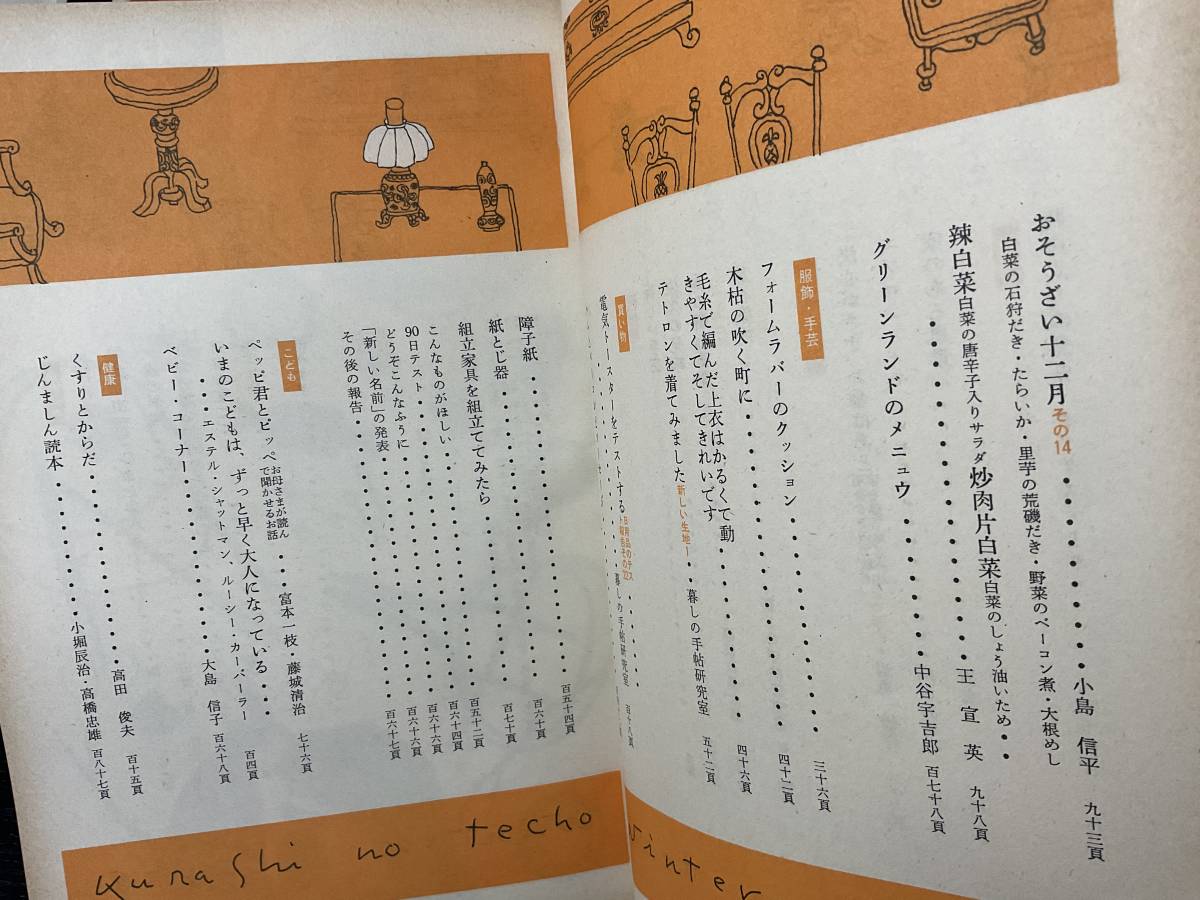 おそうざい十二月 その14・・・・・・・・・・小島 信平 九十三頁
白菜の石狩だき・たらいか・里芋の荒磯だき・野菜のベーコン煮・大根めし
辣白菜 白菜の唐辛子入りサラダ 炒肉片白菜 白菜のしょう油いため・・
・・・・・・・・・・・・・・・・王 宣 英 九十八頁
グリーンランドのメニュウ・・・・・・・中谷宇吉郎 百七十八頁
服飾・手芸
三十六頁
フォームラバーのクッション・・・・・・・・・・・四十二頁
木枯の吹く町に・・・・・・・・・・・・・・四十六頁
毛糸で編んだ上衣はかるくて動
きやすくてそしてきれいです
テトロンを着てみました 新しい生地Ⅰ・・暮しの手帖研究室 五十二頁
買い物
電気トースターをテストする 日用品のテスト報告その22・・・暮しの手帖研究室 百十八頁
障子紙・・・・・・・・・・・・・・百五十四頁
紙とじ器・・・・・・・・・・・・・百六十頁
組立家具を組立ててみたら・・・・・・・・・百七十頁
こんなものがほしい・・・・・・・・・・・・百五十二頁
90日テスト・・・・・・・・・・・・・・百六十四頁
どうそこんなふうに・・・・・・・・・・・・百六十六頁
「新しい名前」の発表・・・・・・・・・・・百六十六頁
その後の報告・・・・・・・・・・・・・・百六十七頁
こども
ペッピ君とピッペ お母さまが読んで聞かせるお話・・・富本一枝・藤城清治 七十六頁
いまのこどもは、ずっと早く大人になっている・・・・
・・・・エステル・シャットマン、ルーシー・カーバーラー 百四頁
ベビー・コーナー・・・・・・・・・・・大島 信子 百六十八頁
健康
くすりとからだ・・・・・・・・・・・・・高田 俊夫 百十五頁
じんましん読本・・・・・・・・・小堀辰治・高橋忠雄 百八十七頁
kurashi no techo
winter